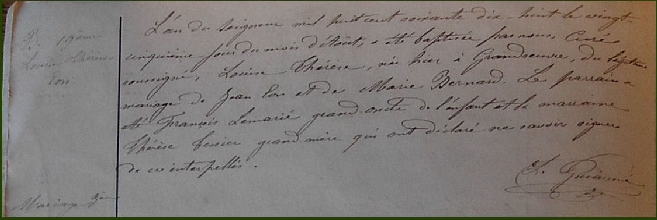 B. 19ème
Louise Thérèse
Eon
L'an du Seigneur mil huit cent soixante dix-huit le vingt-
cinquième jour du mois d'Août, a été baptisée par nous, Curé
soussigné, Louise Thérèse, née hier à Grandoeuvre, du légitime
mariage de Jean Eon et de Marie Bernard. Le parrain a
été François Lemarié grand-oncle de l'enfant et la marraine
Thérèse Tessier grand'mère qui ont déclaré ne savoir signer
de ce interpellés.
Mariage